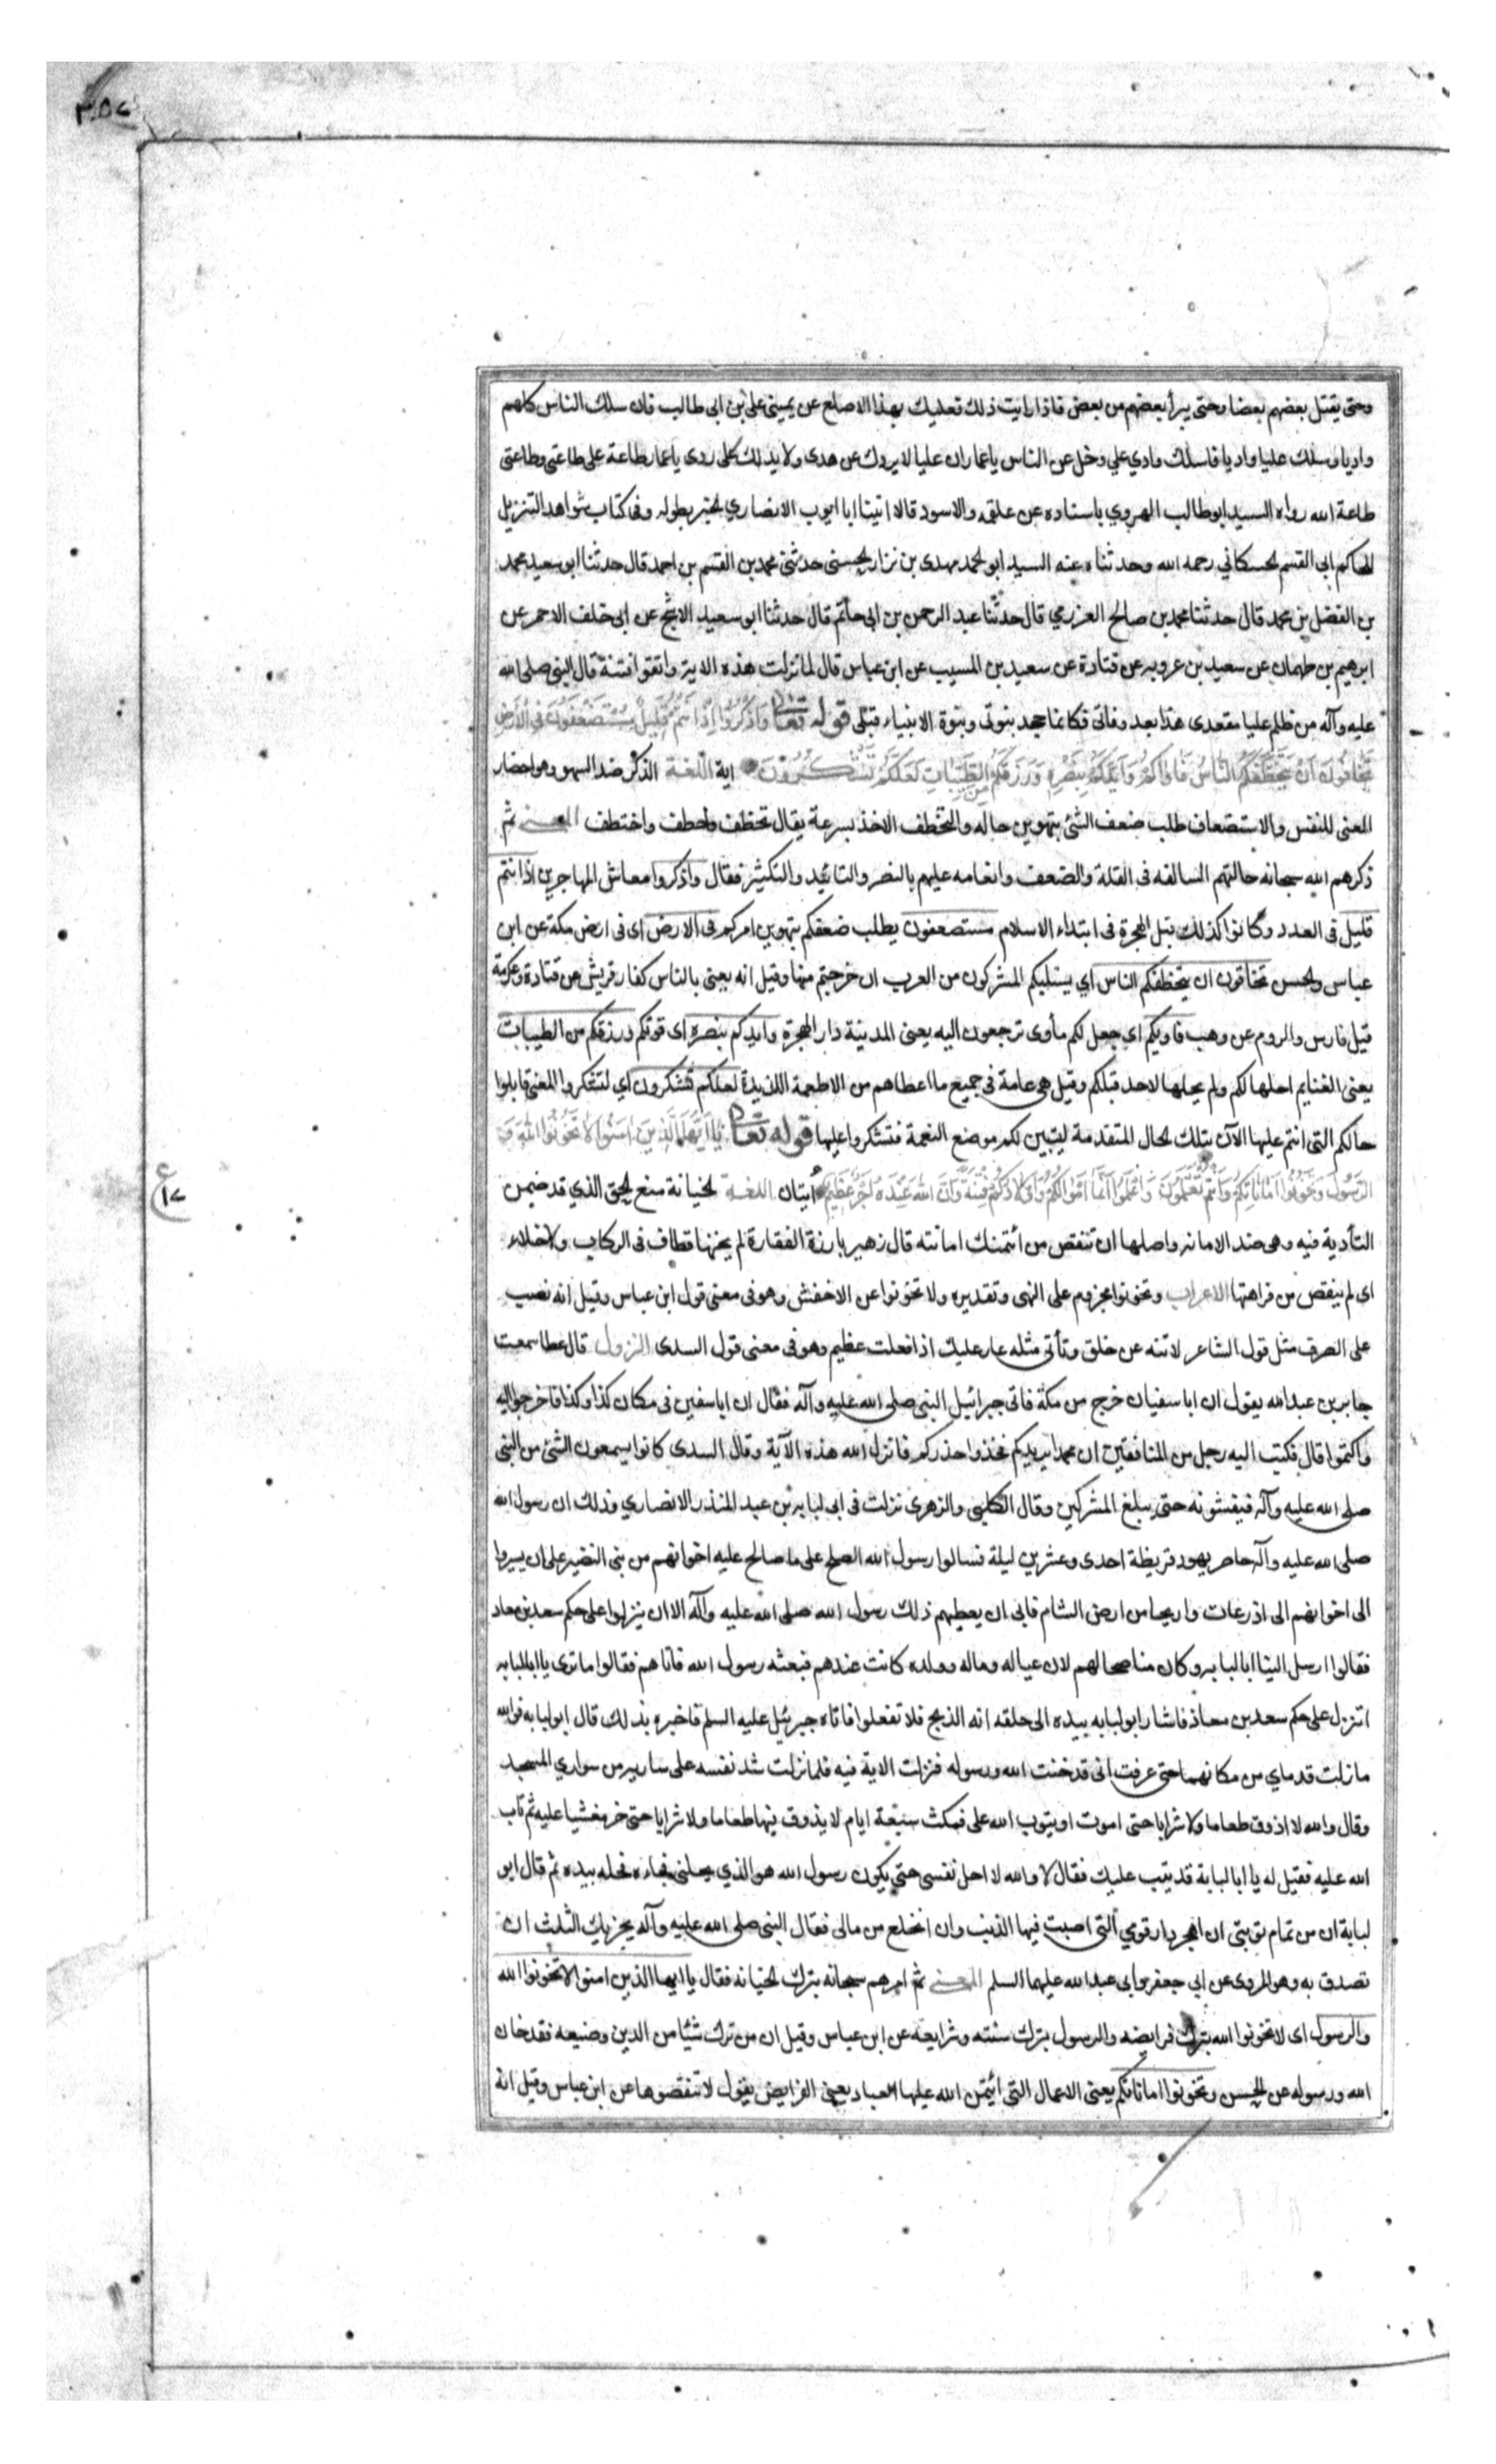 ٣٥٧
وحتى يقتل بعضهم بعضا وحتى يبرأ بعضهم من بعض فاذا رايت ذلك فعليك بهذا الاصلع عن يميني علي بن ابي طالب فان سلك الناس كلهم
واديا وسلك عليا واديا فاسلك وادي علي وخل عن الناس يا عمار ان عليا لا يردك عن هدى ولا يدلك على ردى يا عمار طاعة علي طاعتي وطاعتي
طاعة الله رواه السيد ابو طالب الهروي باسناده عن علقمه والاسود قالا اتينا ابا ايوب الانصاري الخبر بطوله وفى كتاب شواهد التنزيل
للحاكم ابي القسم الحسكاني رحمه الله وحدثناه عنه السيد ابو الحمد مهدى بن نزار الحسنى حدثني محمد بن القسم بن احمد قال حدثنا ابو سعيد محمد
بن الفضل بن محمد قال حدثنا محمد بن صالح العزرمي قال حدثنا عبد الرحمن بن ابي حاتم قال حدثنا ابو سعيد الاشج عن ابي خلف الاحمر عن
ابرهيم بن طهمان عن سعيد بن عروبه عن قتادة عن سعيد بن المسيب عن ابن عباس قال لما نزلت هذه الاية واتقوا فتنة قال النبي صلى الله
عليه وآله من ظلم عليا مقعدى هذا بعد وفاتى فكانما جحد بنوتى وبنوة الانبياء قبلى قوله تعالى وَاذْكُرُوا اِذْ اَنْتُمْ قَلِيلٌ مُسْتَضْعَفُونَ فِى الْاَرْضِ
تَخَافُونَ اَنْ يَتَخَطَّفَكُمُ النَّاسُ فَاٰوٰىكُمْ وَاَيَّدَكُمْ بِنَصْرِهِ وَرَزَقَكُمْ مِنَ الطَّيِّبَاتِ لَعَلَّكُمْ تَشْكُرُونَ اية اللغة الذكر ضد السهو وهو احضار
المعنى للنفس والاستضعاف طلب ضعف الشئ بتهوين حاله والتخطف الاخذ بسرعة يقال تخطف وخطف واختطف المعنى ثم
ذكرهم الله سبحانه حالتهم السالفه فى القلة والضعف وانعامه عليهم بالنصر والتائيد والتكثير فقال واذكروا معاشر المهاجرين اذ انتم
قليل فى العدد وكانوا كذلك قبل الهجرة فى ابتداء الاسلام مستضعفون يطلب ضعفكم بتهوين امركم فى الارض اى فى ارض مكة عن ابن
عباس والحسن تخافون ان يتخطفكم الناس اي يستلبكم المشركون من العرب ان خرجتم منها وقيل انه يعنى بالناس كفار قريش عن قتادة وعكرمة
قيل فارس والروم عن وهب فاويكم اي جعل لكم مأوى ترجعون اليه يعنى المدينة دار الهجرة وايدكم بنصره اى قوتكم ورزقكم من الطيبات
يعنى الغنايم احلها لكم ولم يحلها لاحد قبلكم وقيل هى عامة فى جميع ما اعطاهم من الاطعمة اللذيذة لعلكم تشكرون اي لتشكروا المعنى قابلوا
حالكم التى انتم عليها الآن بتلك الحال المتقدمة ليتبين لكم موضع النعمة فتشكروا عليها قوله تعالى يَا اَيُّهَا الَّذِينَ اٰمَنُوا لَا تَخُونُوا اللهَ وَ
الرَّسُولَ وَتَخُونُوا اَمَانَاتِكُمْ وَاَنْتُمْ تَعْلَمُونَ وَاعْلَمُوا اَنَّمَا اَمْوَالُكُمْ وَاَوْلَادُكُمْ فِتْنَةٌ وَاَنَّ اللهَ عِنْدَهُ اَجْرٌ عَظِيمٌ اٰيتان اللغة الخيانة منع الحق الذي قد ضمن
التأدية فيه وهى ضد الامانه واصلها ان تنقص من ائتمنك امانته قال زهير بارزة الفقارة لم يخنها قطاف فى الركاب ولا خلاء
اى لم ينقص من فراهتها الاعراب وتخونوا مجزوم على النهى وتقديره ولا تخونوا عن الاخفش وهو فى معنى قول ابن عباس وقيل انه نصب
على الصرف مثل قول الشاعر لا تنه عن خلق وتأتي مثله عار عليك اذا فعلت عظيم وهو فى معنى قول السدى النزول قال عطا سمعت
جابر بن عبد الله يقول ان ابا سفيان خرج من مكة فاتى جبرائيل النبي صلى الله عليه وآله فقال ان ابا سفين فى مكان كذا وكذا فاخرجوا اليه
واكتموا قال فكتب اليه رجل من المنافقين ان محمدا يريدكم فخذوا حذركم فانزل الله هذه الآية وقال السدى كانوا يسمعون الشئ من النبي
صلى الله عليه وآله فيفشونه حتى يبلغ المشركين وقال الكلبى والزهرى نزلت فى ابى لبابه بن عبد المنذر الانصاري وذلك ان رسول الله
صلى الله عليه وآله حاصر يهود قريظة احدى وعشرين ليلة فسالوا رسول الله الصلح على ما صالح عليه اخوانهم من بنى النضير على ان يسيروا
الى اخوانهم الى اذرعات واريحا من ارض الشام فابى ان يعطيهم ذلك رسول الله صلى الله عليه وآله الا ان ينزلوا على حكم سعد بن معاد
فقالوا ارسل الينا ابا لبابه وكان مناصحا لهم لان عياله وماله وولده كانت عندهم فبعثه رسول الله فاتاهم فقالوا ما ترى يا ابا لبابه
اننزل على حكم سعد بن معاذ فاشار ابو لبابه بيده الى حلقه انه الذبح فلا تفعلوا فاتاه جبرئيل عليه السلم فاخبره بذلك قال ابو لبابه فوالله
ما زلت قدماي من مكانهما حتى عرفت انى قد خنت الله ورسوله فنزلت الاية فيه فلما نزلت شد نفسه على ساريه من سواري المسجد
وقال والله لا اذوق طعاما ولا شرابا حتى اموت او يتوب الله على فمكث سبعة ايام لا يذوق فيها طعاما ولا شرابا حتى خر مغشيا عليه ثم تاب
الله عليه فقيل له يا ابا لبابة قد تيب عليك فقال لا والله لا احل نفسى حتى يكون رسول الله هو الذي يحلنى فجاءه فحله بيده ثم قال ابو
لبابة ان من تمام توبتى ان اهجر دار قومي التى اصبت فيها الذنب وان انخلع من مالى فقال النبي صلى الله عليه وآله يجزيك الثلث ان
تصدق به وهو المروى عن ابي جعفر وابى عبد الله عليهما السلم المعنى ثم امرهم سبحانه بترك الخيانه فقال يا ايها الذين امنوا لا تخونوا الله
والرسول اى لا تخونوا الله بترك فرايضه والرسول بترك سنته وشرايعه عن ابن عباس وقيل ان من ترك شيئا من الدين وضيعه فقد خان
الله ورسوله عن الحسن وتخونوا اماناتكم يعنى الاعمال التى ائتمن الله عليها العباد يعنى الفرايض يقول لا تنقصوها عن ابن عباس وقيل انه